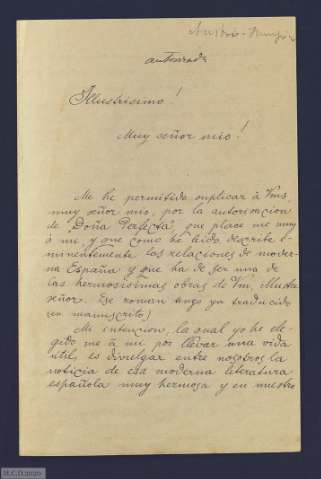 autorizada
Illustrisimo!
Muy señor mio!
Me he permitido suplicar à Vms,
muy señor mio, por la autorizacion
de "Doña Perfecta", que place me muy
à mi, y que como he leido, describe e-
minentemente las relaciones de moder-
na España y que ha de ser una de
las hermosisimas obras de Vm, Illustre
señor. Ese roman tengo ya traducido
(en manuscrito)
Mi intencion, la qual yo he ele-
gido me à mi por llevar una vida
util, es divulgar entre nosotros la
noticia de esa moderna literatura
española muy hermosa y en nuestro